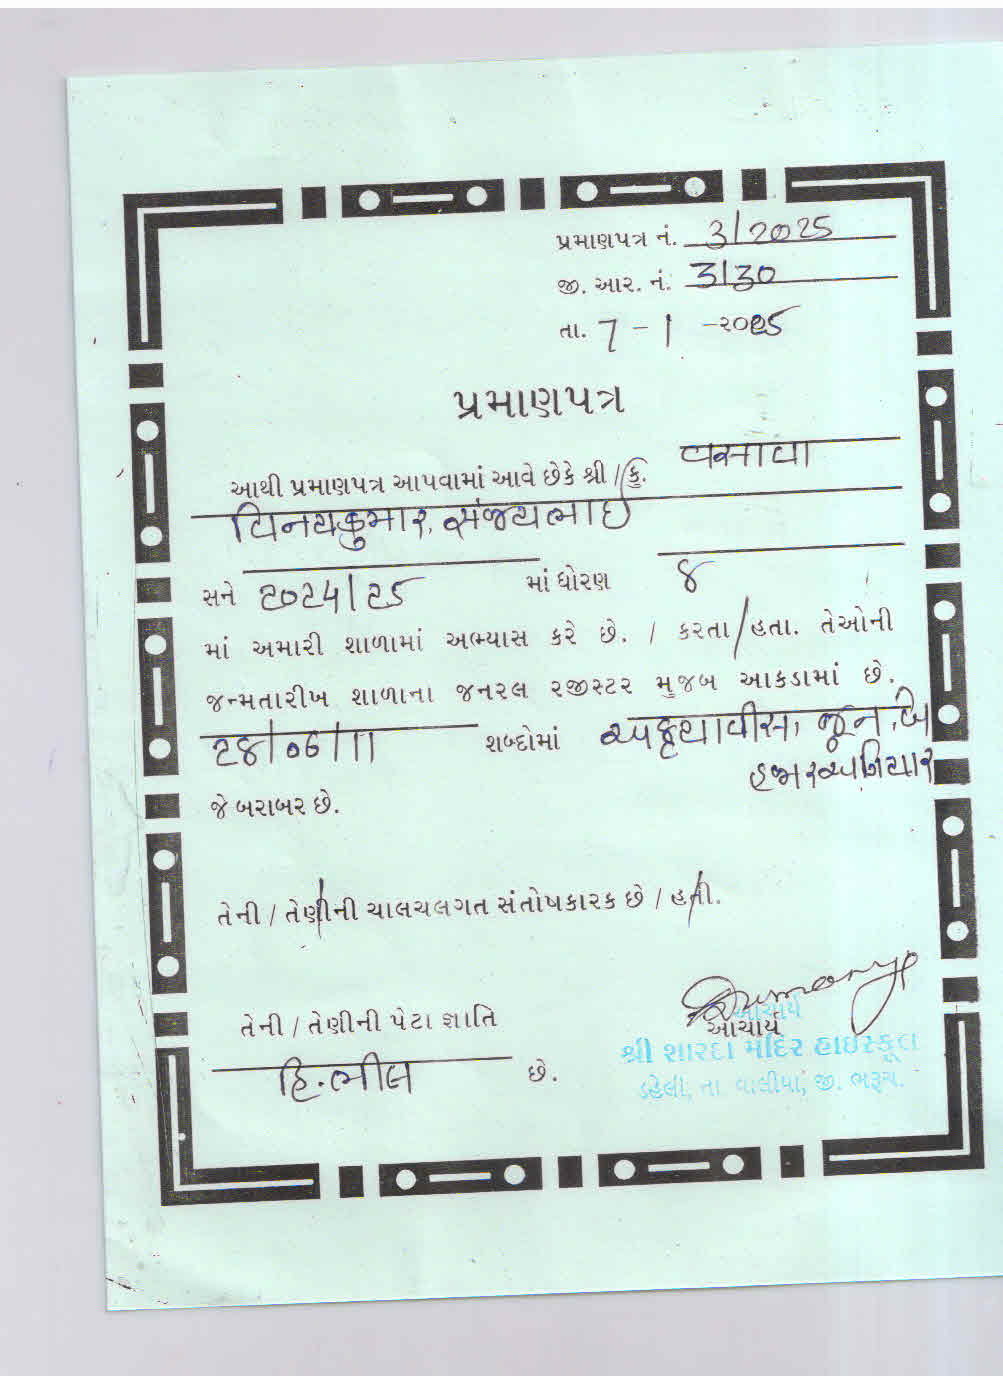 પ્રમાણપત્ર નં. 3/2025
જી. આર. નં. 3130
તા. 7 - 1 -૨૦25
પ્રમાણપત્ર
આથી પ્રમાણપત્ર આપવામાં આવે છેકે શ્રી / કુ. વસાવા
વિનયકુમાર. સંજયભાઈ
સને ૨૦૨4/૨5 માં ધોરણ ૪
માં અમારી શાળામાં અભ્યાસ કરે છે. / કરતા / હતા. તેઓની
જન્મતારીખ શાળાના જનરલ રજીસ્ટર મુજબ આકડામાં છે.
૨૪/૦6/11 શબ્દોમાં અઠ્ઠયાવીસ, જૂન, બે
હજાર અગિયાર
જે બરાબર છે.
તેની / તેણીની ચાલચલગત સંતોષકારક છે / હતી.
તેની / તેણીની પેટા જ્ઞાતિ
આચાર્ય
આચાર્ય
શ્રી શારદા મંદિર હાઇસ્કૂલ
હિ. ભીલ છે.
ડહેલી, તા. વાલીયા, જી. ભરૂચ.